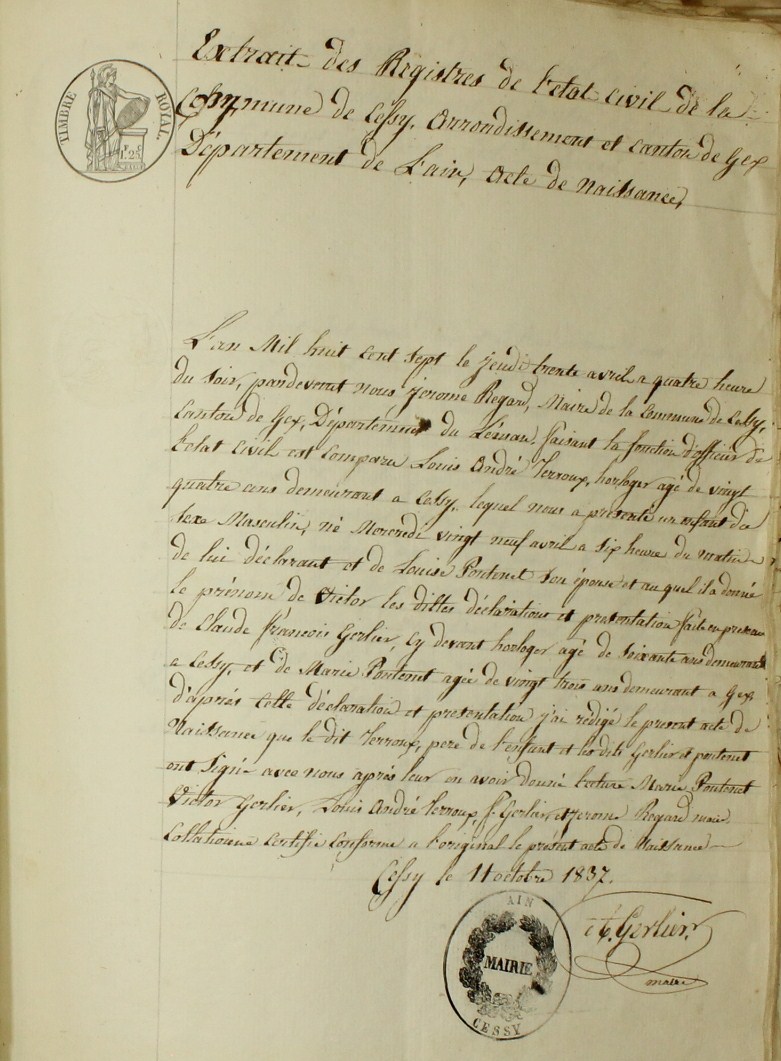 TIMBRE ROYAL.
1F 25C
Extrait des Registres de l'etat Civil de la
Commune de Cessy, Arrondissement et canton de Gex
Département de L'ain, acte de naissance,
L'an Mil huit cent sept le Jeudi trente avril a quatre heure
du soir, pardeverant nous Jerome Regard, Maire de la Commune de Cessy,
Canton de Gex, Département du Léman, faisant la fonction d'officier de
l'etat Civil est comparu Louis André Terroux, horloger agé de vingt
quatre ans demeurant a Cessy, lequel nous a presenté un enfant du
sexe Masculin, né Mercredi vingt neuf avril a six heure du matin
de lui déclarant et de Louise Pontenet son épouse et auquel il a donné
le prénom de Victor les dittes déclarations et presentation faite en presence
de Claude françois Gerlier, Cy devant horloger agé de soixante ans demeurant
a Cessy, et de Marie Pontenet agée de vingt trois ans demeurant a Gex
d'aprés cette déclaration et presentation j'ai rédigé le present acte de
Naissance que le dit Terroux, pere de l'enfant et les dits Gerlier et pontenet
ont signé avec nous aprés leur en avoir donné lecture Marie Pontenet
Victor Gerlier, Louis André Terroux, f. Gerlier, et Jerome Regard maire
Collationné Certifié Conforme a l'original le présent acte de Naissance
Cessy le 11 octobre 1837.
AIN
MAIRIE
CESSY
Gerlier.
maire